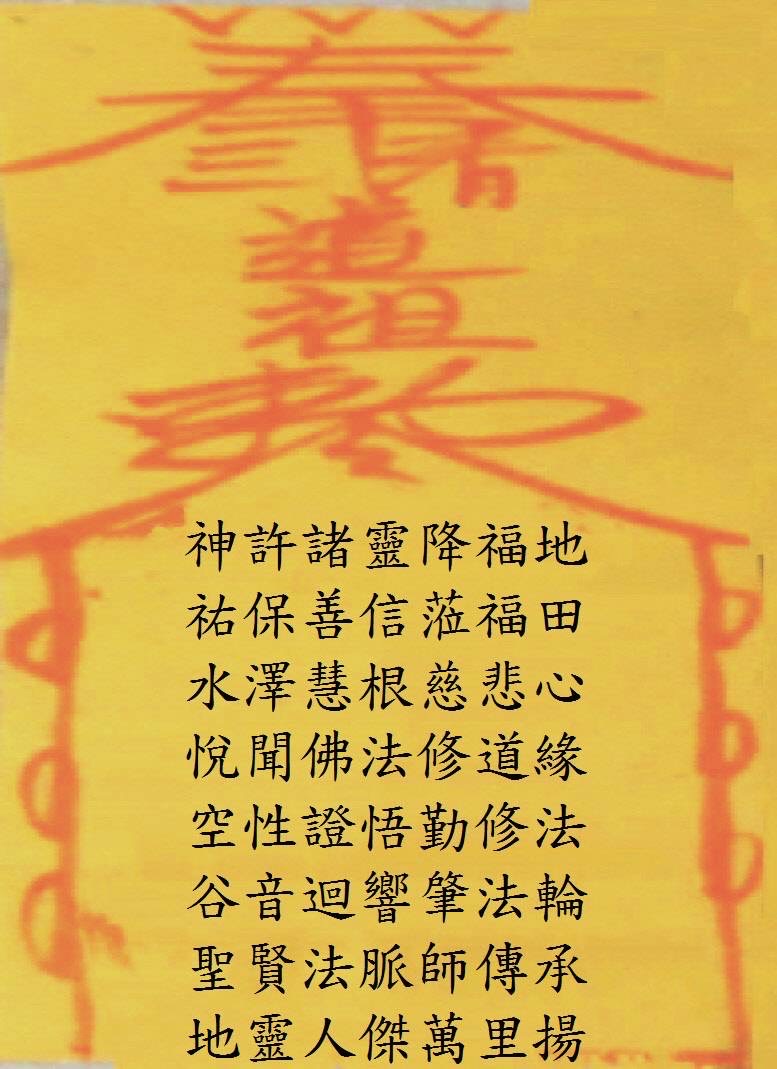 道
祖
神許諸靈降福地
祐保善信蒞福田
水澤慧根慈悲心
悅聞佛法修道緣
空性證悟勤修法
谷音迴響肇法輪
聖賢法脈師傳承
地靈人傑萬里揚